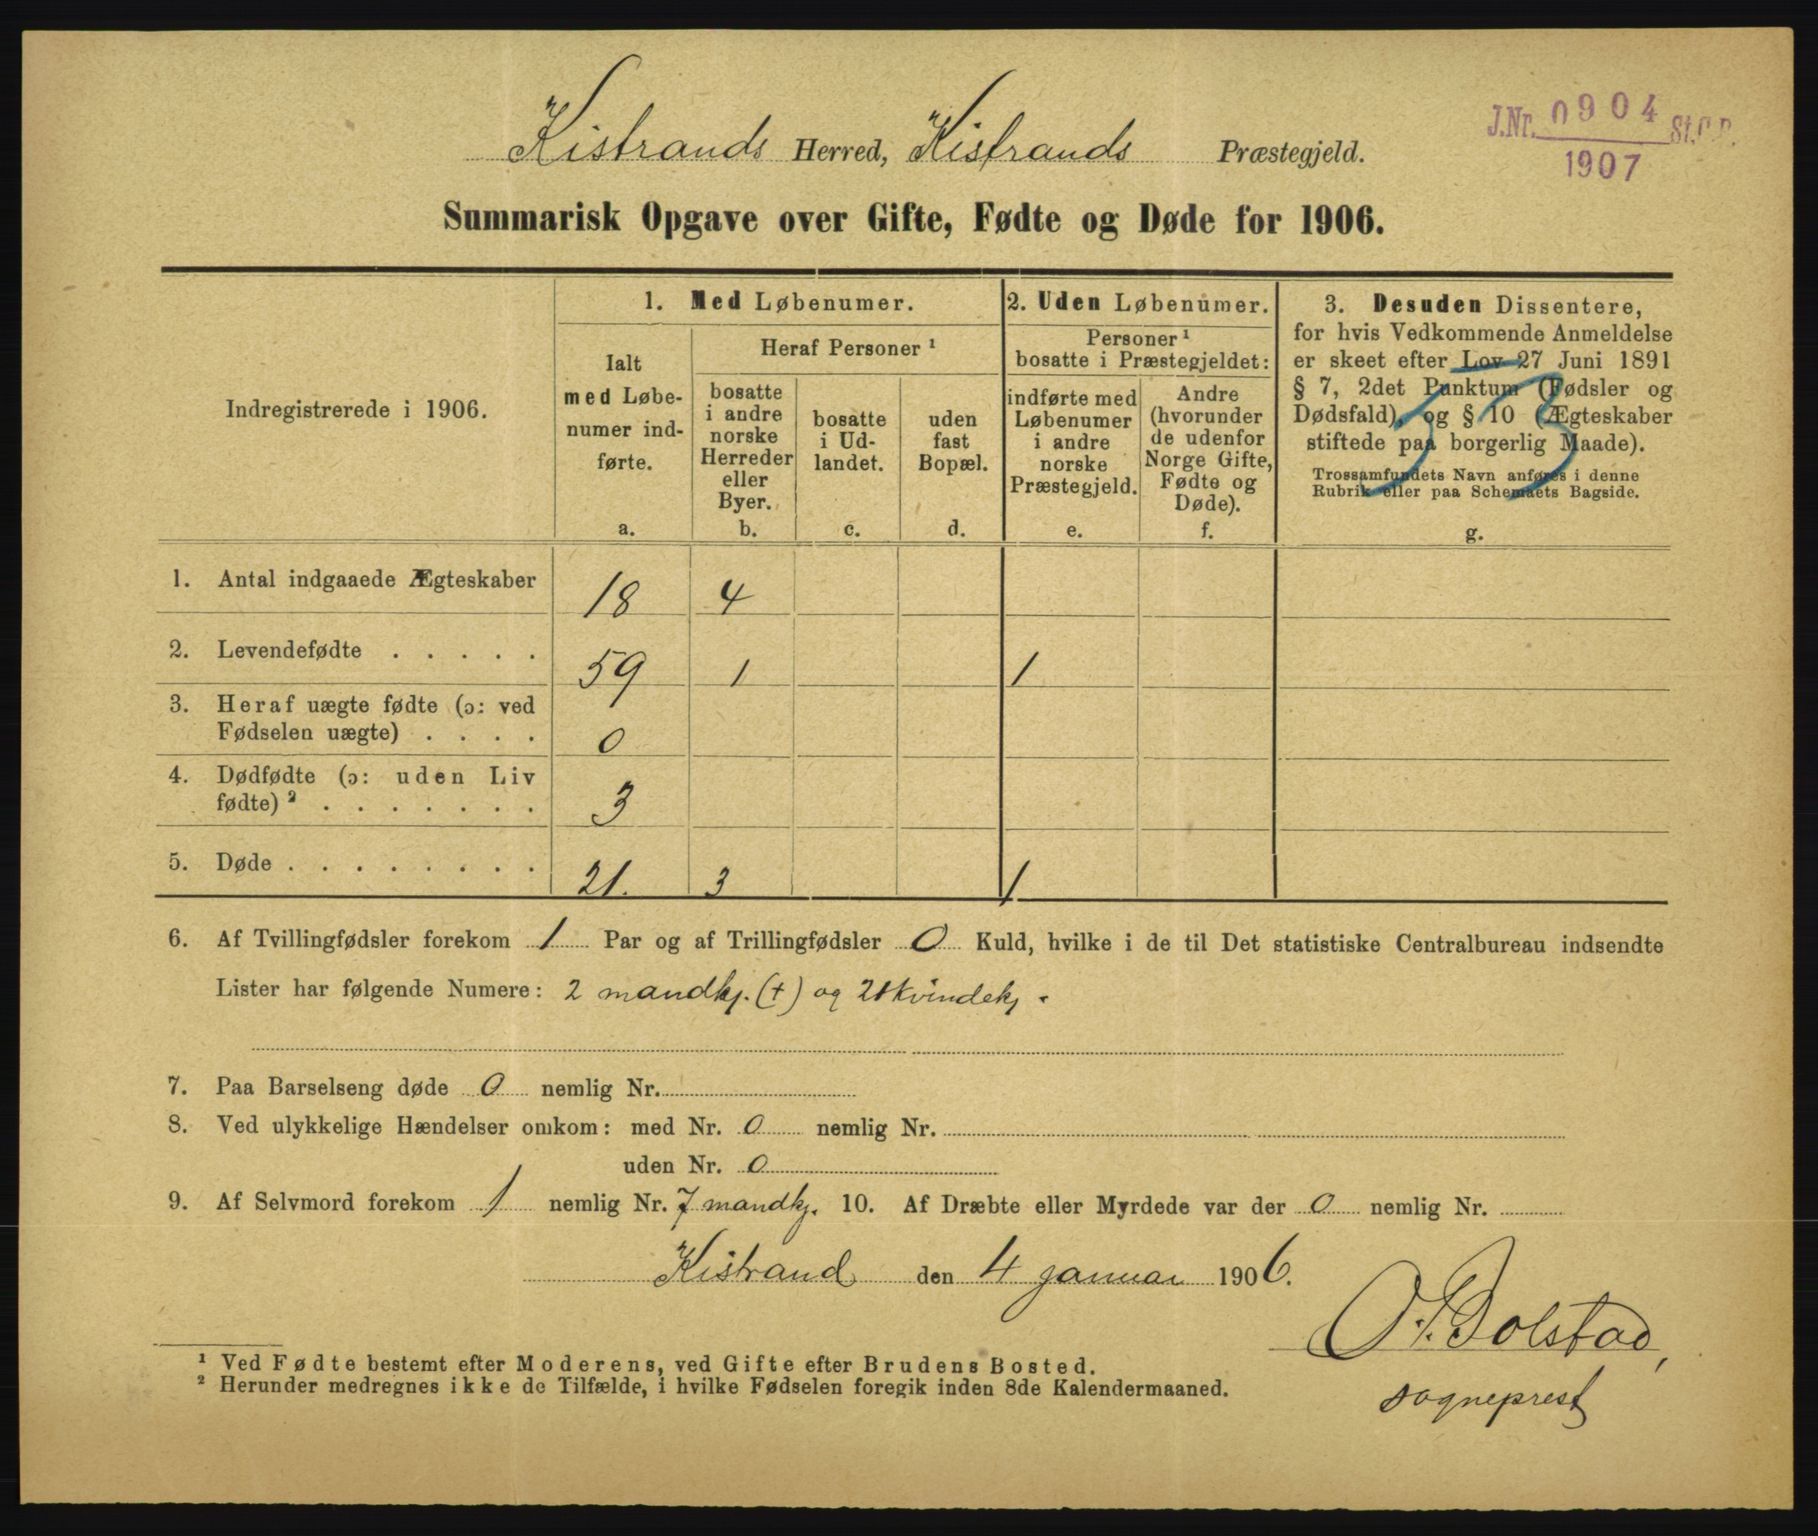 Kistrands Herred, Kistrands Præstegjeld.
J.Nr. 0904 St.C.B.
1907
Summarisk Opgave over Gifte, Fødte og Døde for 1906.
Indregistrerede i 1906.
1. Med Løbenumer.
Ialt
med Løbe-
numer ind-
førte.
a.
Heraf Personer ¹
bosatte
i andre
norske
Herreder
eller
Byer.
b.
bosatte
i Ud-
landet.
c.
uden
fast
Bopæl.
d.
2. Uden Løbenumer.
Personer ¹
bosatte i Præstegjeldet:
indførte med
Løbenumer
i andre
norske
Præstegjeld.
e.
Andre
(hvorunder
de udenfor
Norge Gifte,
Fødte og
Døde).
f.
3. Desuden Dissentere,
for hvis Vedkommende Anmeldelse
er skeet efter Lov 27 Juni 1891
§ 7, 2det Punktum (Fødsler og
Dødsfald), og § 10 (Ægteskaber
stiftede paa borgerlig Maade).
Trossamfundets Navn anføres i denne
Rubrik eller paa Schemaets Bagside.
g.
1. Antal indgaaede Ægteskaber 18 4
2. Levendefødte . . . . . 59 1 1
3. Heraf uægte fødte (ɔ: ved
Fødselen uægte) . . . . 0
4. Dødfødte (ɔ: uden Liv
fødte) ² . . . . . . . 3
5. Døde . . . . . . . . 21. 3 1
6. Af Tvillingfødsler forekom 1 Par og af Trillingfødsler 0 Kuld, hvilke i de til Det statistiske Centralbureau indsendte
Lister har følgende Numere: 2 mandkj. (+) og 21 kvindekj.
7. Paa Barselseng døde 0 nemlig Nr.
8. Ved ulykkelige Hændelser omkom: med Nr. 0 nemlig Nr.
uden Nr. 0
9. Af Selvmord forekom 1 nemlig Nr. 7 mandkj. 10. Af Dræbte eller Myrdede var der 0 nemlig Nr.
Kistrand den 4 januar 1906.
O. Bolstad,
sogneprest
¹ Ved Fødte bestemt efter Moderens, ved Gifte efter Brudens Bosted.
² Herunder medregnes ikke de Tilfælde, i hvilke Fødselen foregik inden 8de Kalendermaaned.